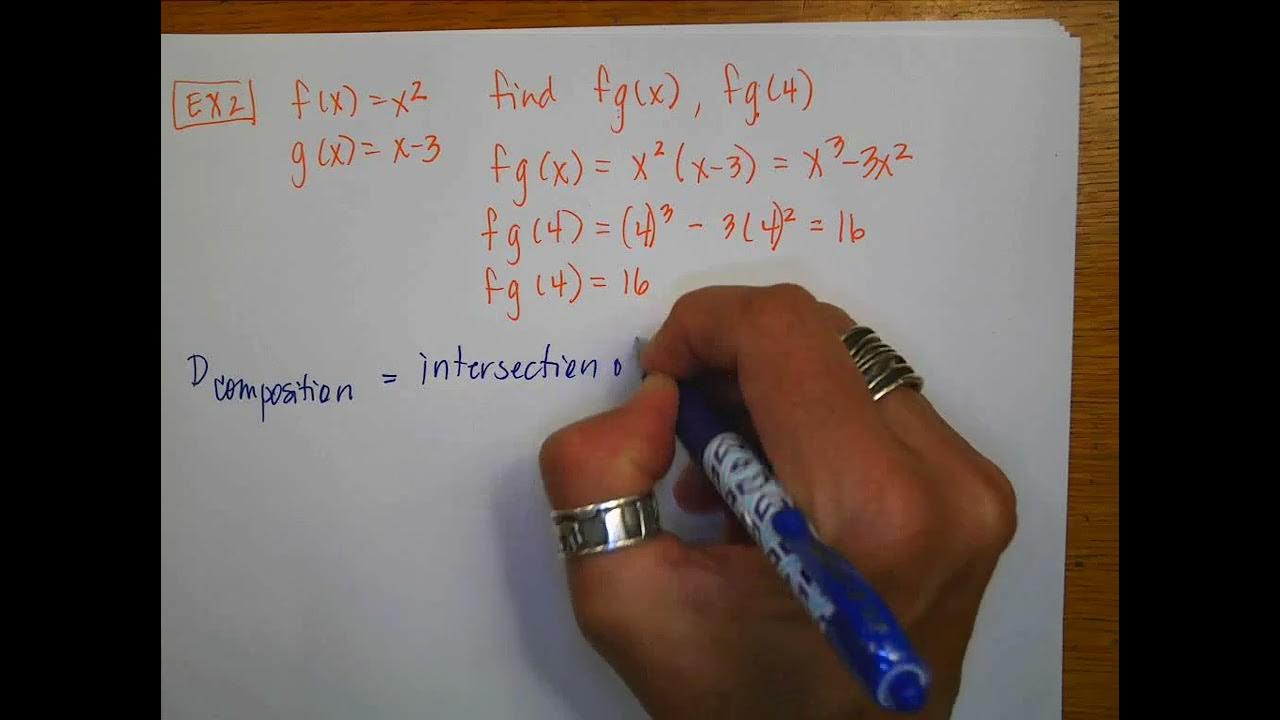 EX2
f(x) = x²
g(x) = x-3
find fg(x), fg(4)
fg(x) = x²(x-3) = x³-3x²
fg(4) = (4)³ - 3(4)² = 16
fg(4) = 16
D composition = intersection o